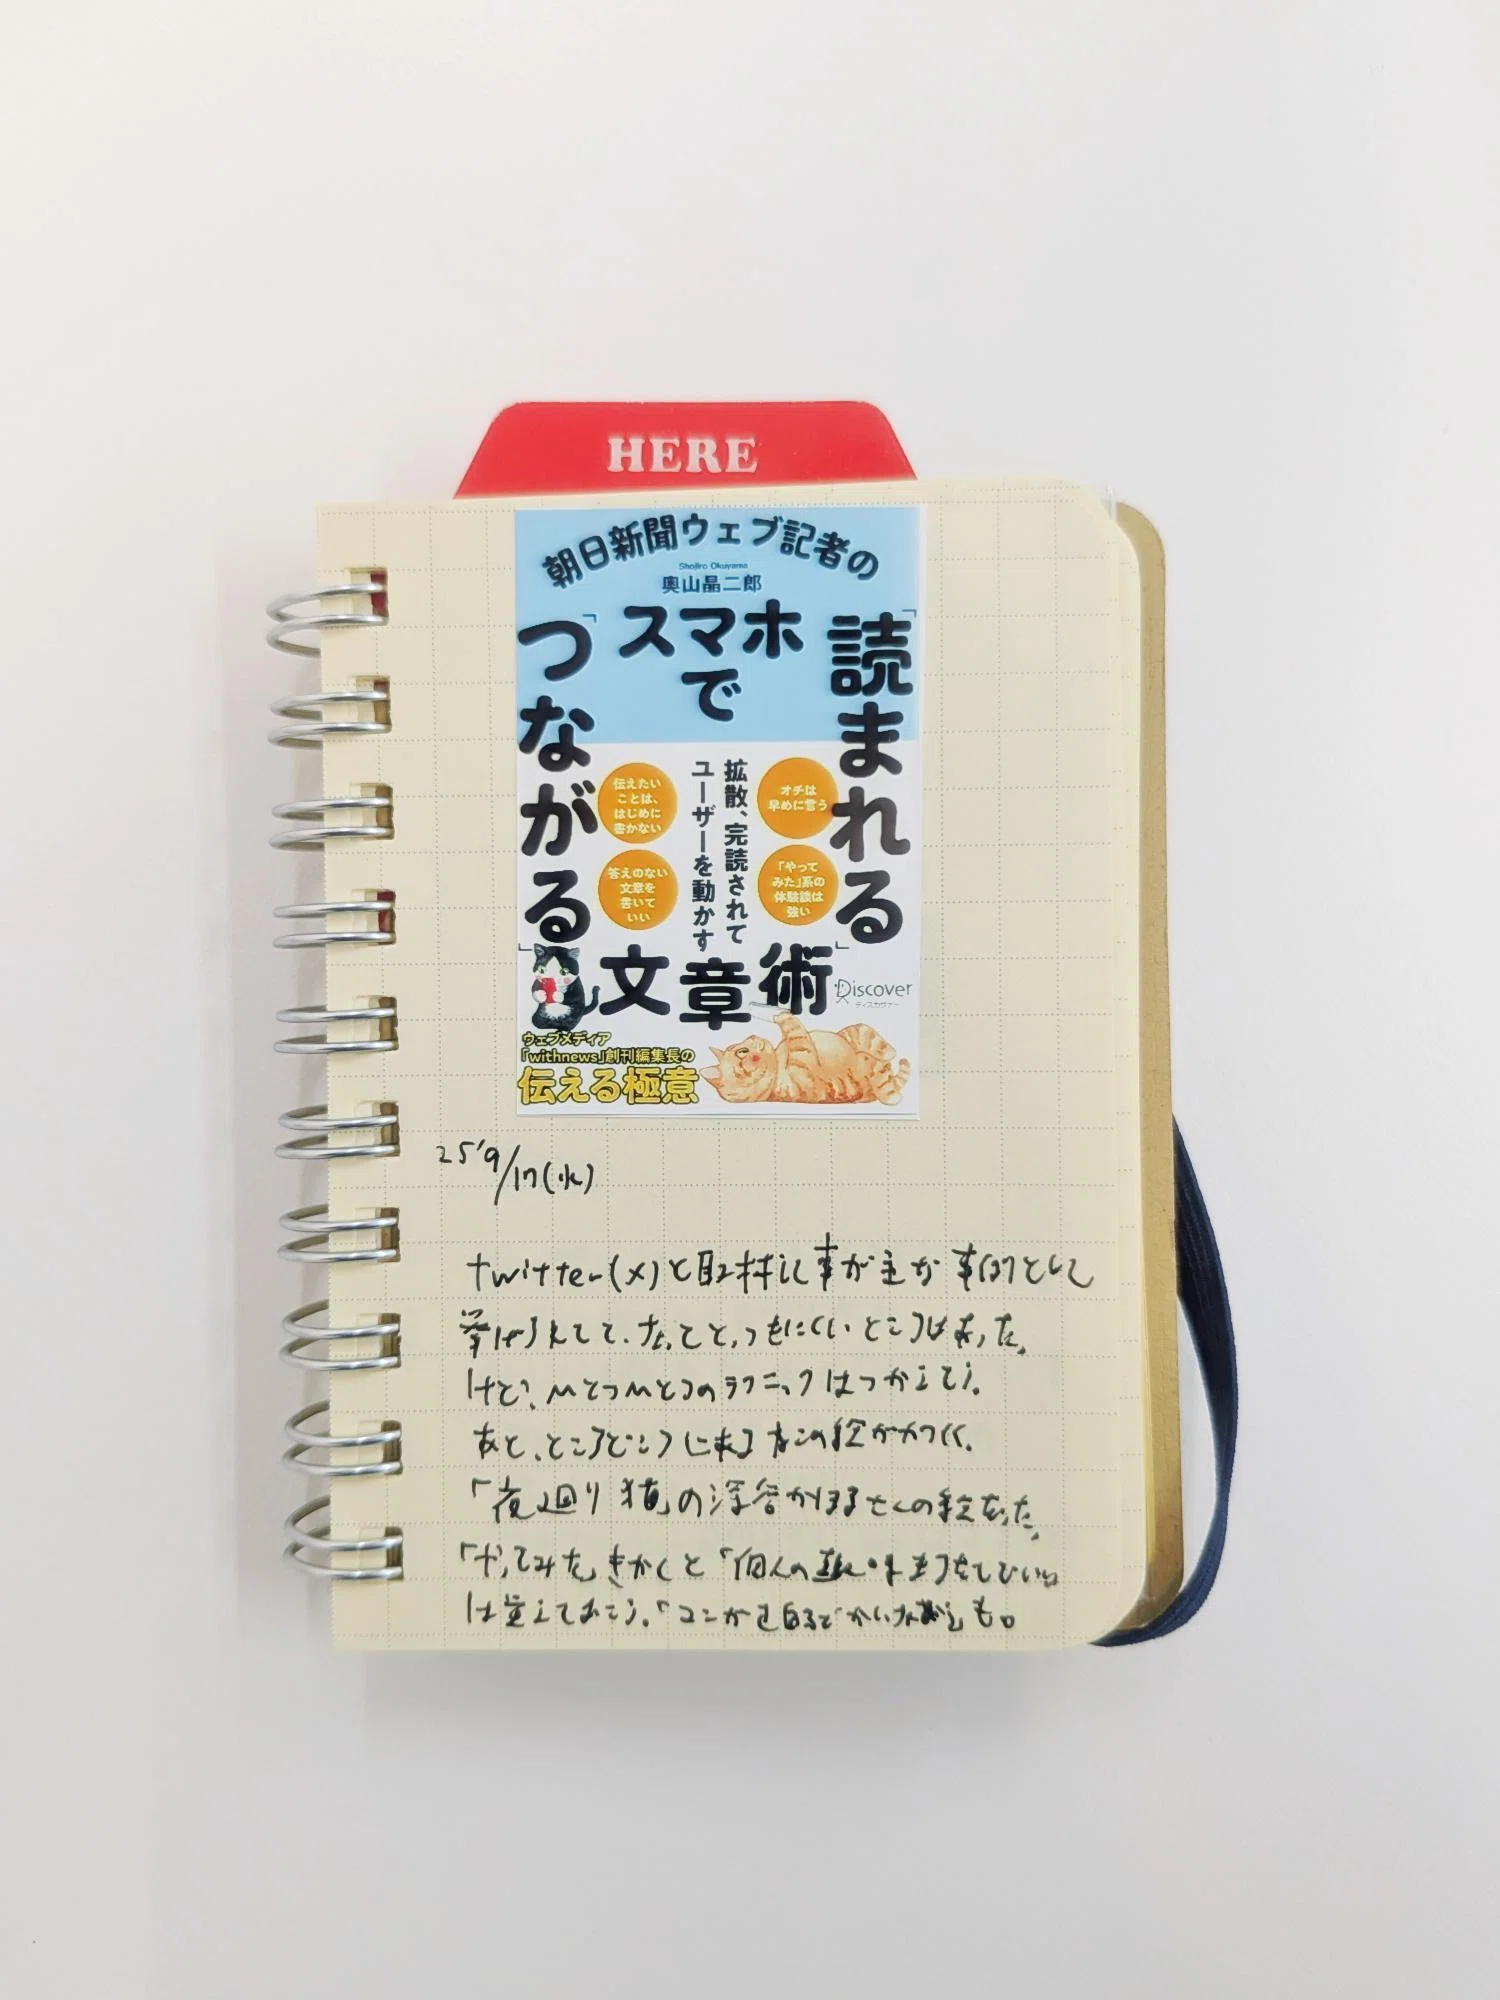 HERE
朝日新聞ウェブ記者の
Shojiro Okuyama
奥山晶二郎
スマホ
で
「読まれる」
「つながる」
文章術
拡散、完読されて
ユーザーを動かす
オチは
早めに言う
「やって
みた」系の
体験談は
強い
伝えたい
ことは、
はじめに
書かない
答えのない
文章を
書いて
いい
Discover
ディスカヴァー
ウェブメディア
「withnews」創刊編集長の
伝える極意
25'9/17(水)
twitter(X)と取材記事が主な事例として
挙げられてて、とっつきにくいところはあった。
けど、ひとつひとつのテクニックはつかえそう。
あと、ところどころに来るねこの絵がかわいい。
「夜廻り猫」の深谷かほるさんの絵だった。
「やってみた」きかくと「個人の
は覚えておこう。も。